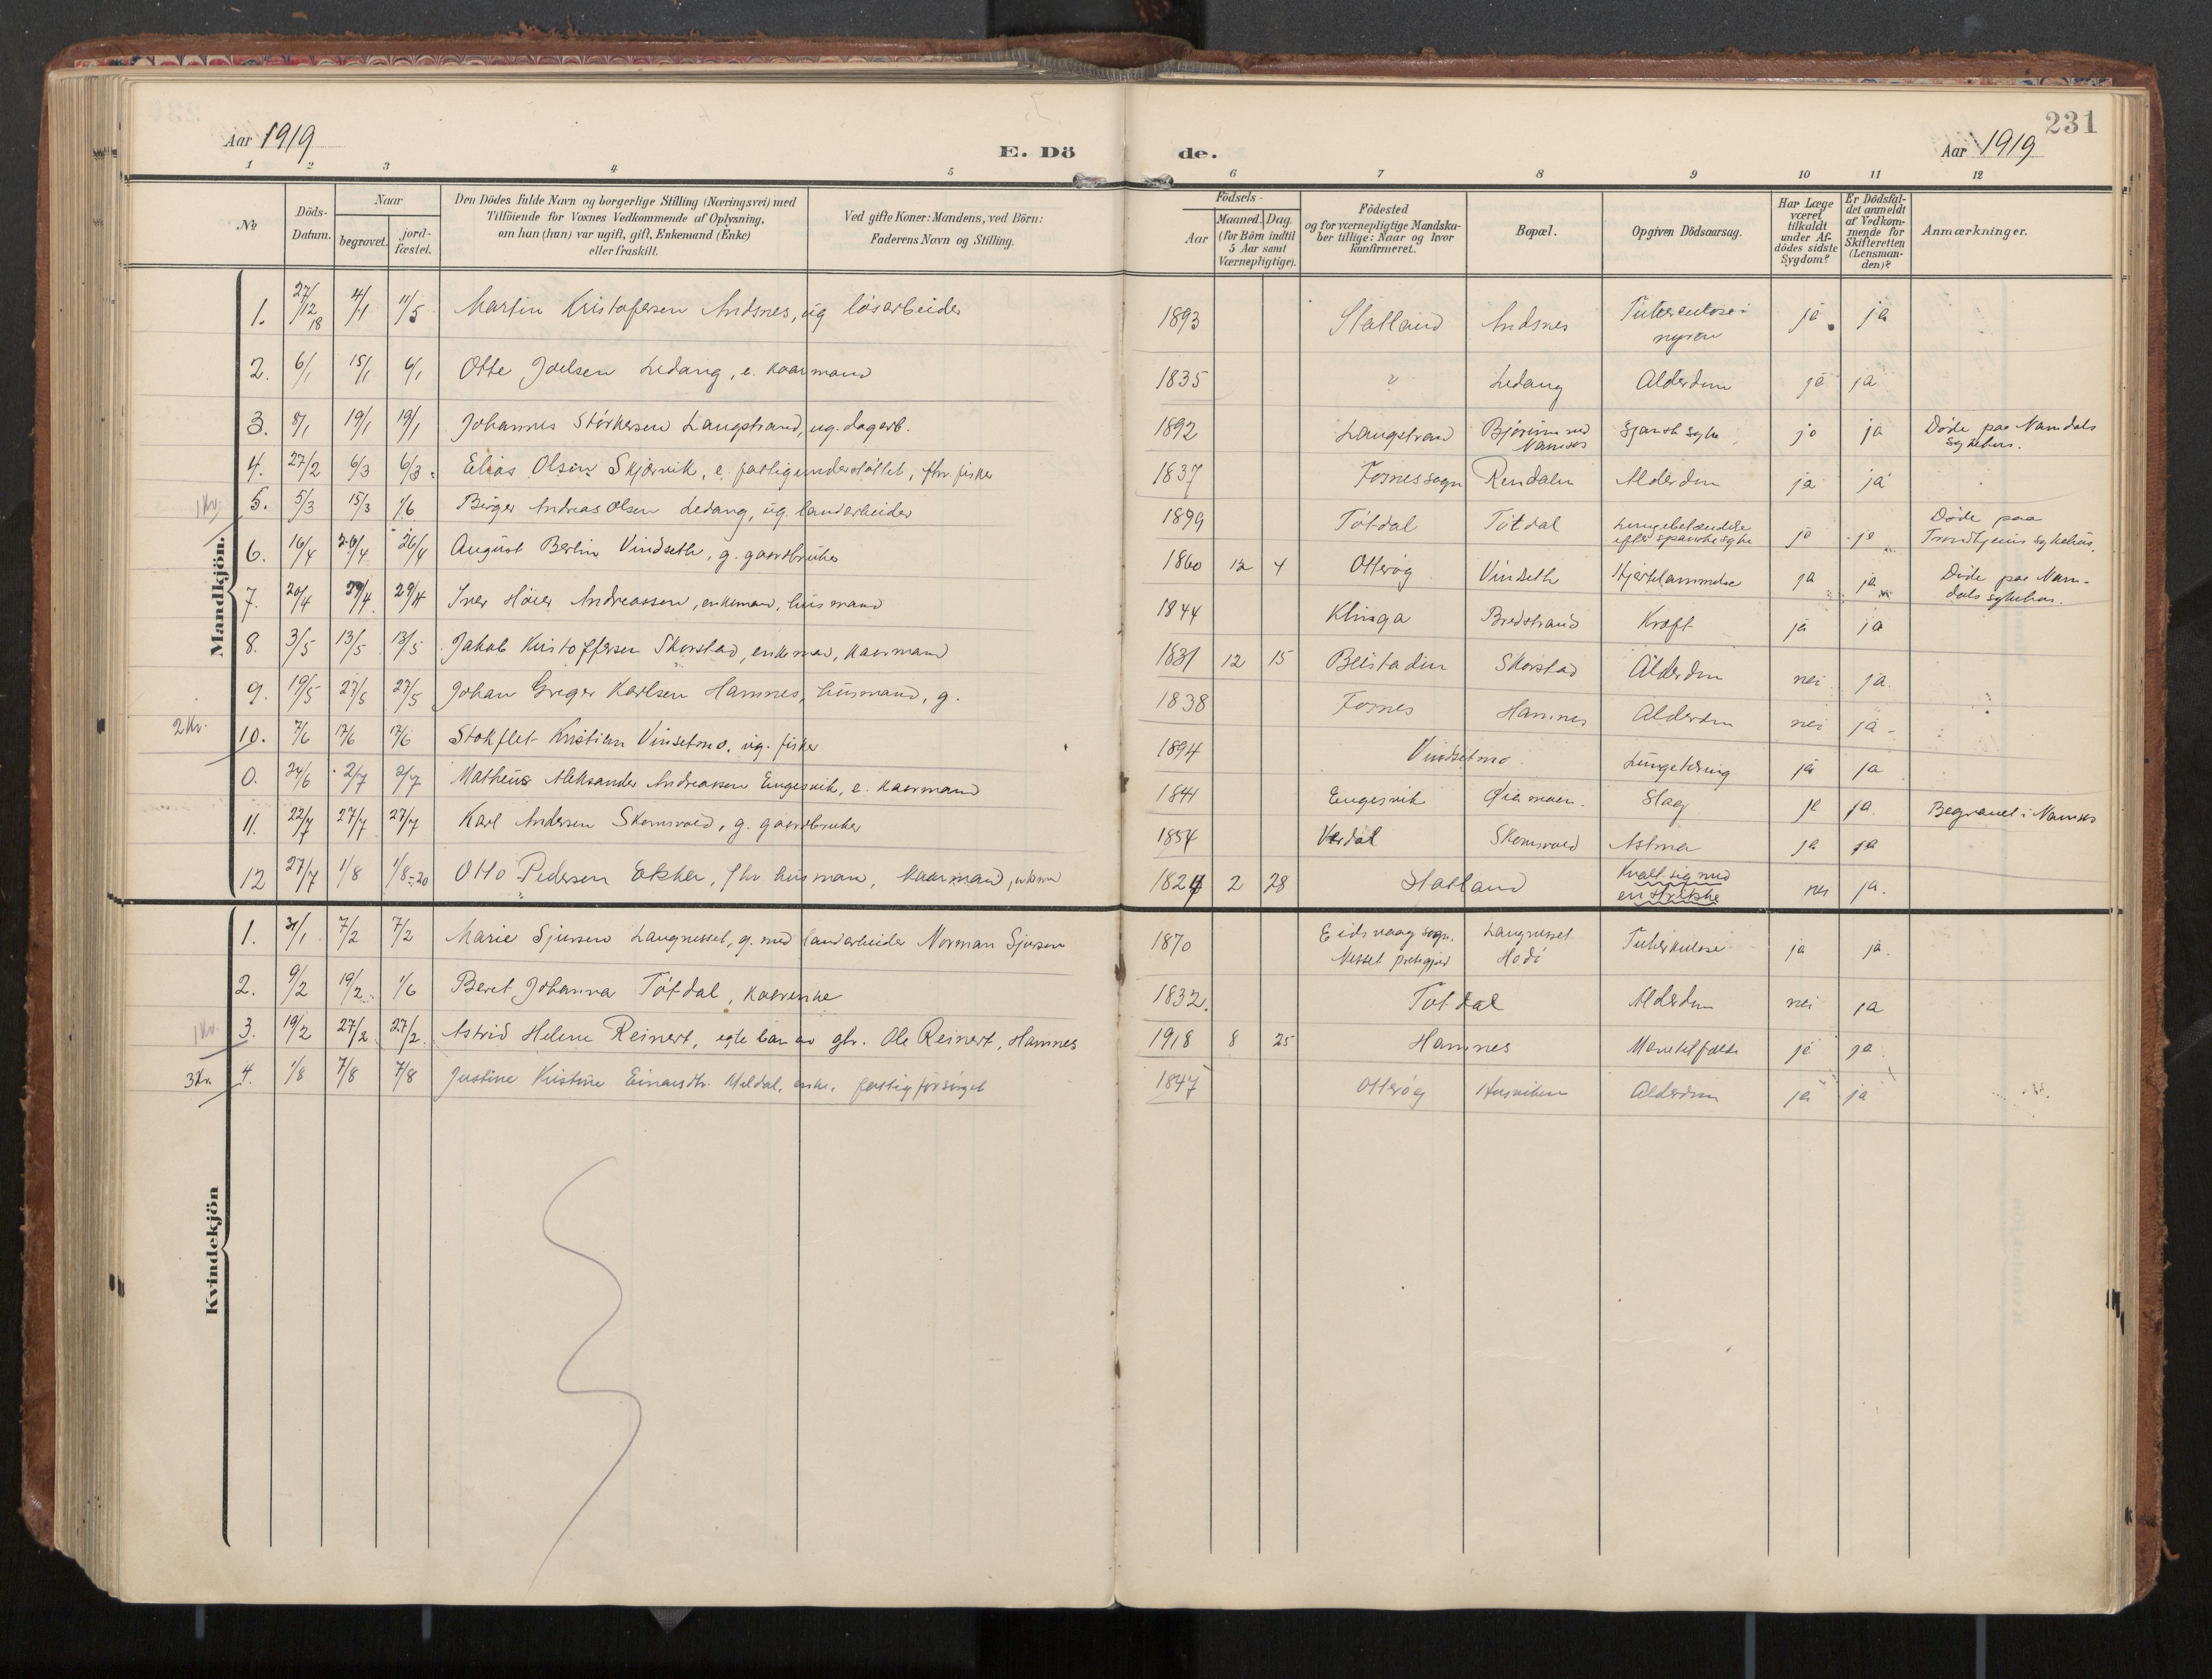 231
Aar 1919
E. Dö de.
Aar 1919
1 2 3 4 5 6 7 8 9 10 11 12
No
Döds-Datum.
Naar
begravet.
jord-fæstet.
Den Dödes fulde Navn og borgerlige Stilling (Næringsvei) med
Tilföiende for Voxnes Vedkommende af Oplysning,
om han (hun) var ugift, gift, Enkemand (Enke)
eller fraskilt.
Ved gifte Koner: Mandens, ved Börn:
Faderens Navn og Stilling.
Födsels-
Aar
Maaned. Dag.
(for Börn indtil
5 Aar samt
Værnepligtige).
Födested
og for værnepligtige Mandska-
ber tillige: Naar og hvor
konfirmeret.
Bopæl.
Opgiven Dödsaarsag.
Har Læge
været
tilkaldt
under Af-
dödes sidste
Sygdom?
Er Dödsfal-
det anmeldt
af Vedkom-
mende for
Skifteretten
(Lensman-
den)?
Anmærkninger.
Mandkjön.
1. 27/12 18 4/1 11/5 Martin Kristofersen Andsnes, ug løsarbeider 1893 Statland Andsnes Tuberculose i nyren ja ja
2. 6/1 15/1 6/1 Otte Joelsen Ledang, e. kaarmand 1835 Ledang Alderdom ja ja
3. 8/1 19/1 19/1 Johannes Størkersen Langstrand, ug. dagarb. 1892 Langstrand Namsos Spansk syke ja ja Døde paa Namdals sykehus.
4. 27/2 6/3 6/3 Elias Olsen Skjærvik, e. fattigunderstøttet, fhv. fisker 1837 Fosnes sogn Rendalen Alderdom ja ja
1 Kr. 5. 5/3 15/3 1/6 Birger Andreas Olsen Ledang, ug. landarbeider 1899 Tøtdal Tøtdal Lungebetændelse efter spanske syke ja ja Døde paa Trondhjems sykehus.
6. 16/4 26/4 26/4 August Berlin Vindseth, g. gaardbruker 1860 12 4 Otterøy Vindseth Hjertelammelse ja ja Døde paa Namdals sykehus.
7. 20/4 29/4 29/4 Iver Høier Andreassen, enkeman, husmand 1844 Klinga Bredstrand Kræft ja ja
8. 3/5 13/5 13/5 Jakob Kristoffersen Skorstad, enkeman, kaarmand 1831 12 15 Beitstaden Skorstad Alderdom nei ja
9. 19/5 27/5 27/5 Johan Greger Karlsen Hamnes, husmand, g. 1838 Fosnes Hamnes Alderdom nei ja
2 Kr. 10. 7/6 17/6 17/6 Stokflet Kristian Vinsetmo. ug. fisker 1894 Vindsetmo Lungetæring ja ja
0. 24/6 2/7 2/7 Matheus Aleksander Andreassen Engesvik, e. kaarmand 1841 Engesvik Slag ja ja Begravet i Namsos
11. 22/7 27/7 27/7 Karl Andersen Skomsvold, g. gaardbruker 1854 Verdal Skomsvold Astma ja ja
12 27/7 1/8 1/8-20 Otto Pedersen Ekker, fhv husman, kaarmand, 1824 2 28 Statland Kvalt sig med en strikke nei ja.
Kvindekjön
1. 31/1 7/2 7/2 Marie Sjursen Langnesset, g. med landarbeider Norman Sjursen 1870 Eidsvaag sogn. Nesset prestegjeld Langnesset Tuberkulose ja ja.
2. 9/2 19/2 1/6 Beret Johanna Tøtdal, kaarenke 1832. Tøtdal Alderdom nei ja
1 Kr. 3. 19/2 27/2 27/2 Astrid Helene Reinert, egte barn av gbr. Ole Reinert, Hamnes 1918 8 25 Hamnes ja ja
3 Kr. 4. 1/8 7/8 7/8 Justine Kristine Einarsdtr. Meldal, enke, fattigforsørget 1847 Otterøy Husviken Alderdom ja ja